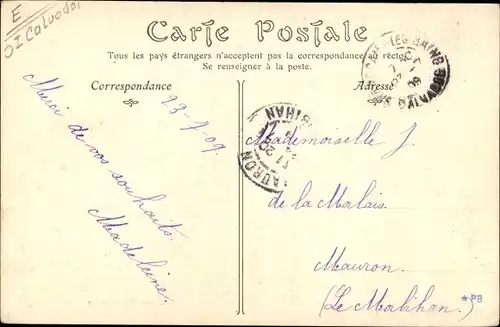 E
01 Calvados
Carte Postale
Tous les pays étrangers n'acceptent pas la correspondance au recto
Se renseigner à la poste.
Correspondance
Adresse
23-7-09
Merci de vos souhaits.
Madeleine.
Mademoiselle J.
de la Malais
Mauron
(Le Morbihan.)
MAURON
BIHAN
LES BAINS
09
*PB